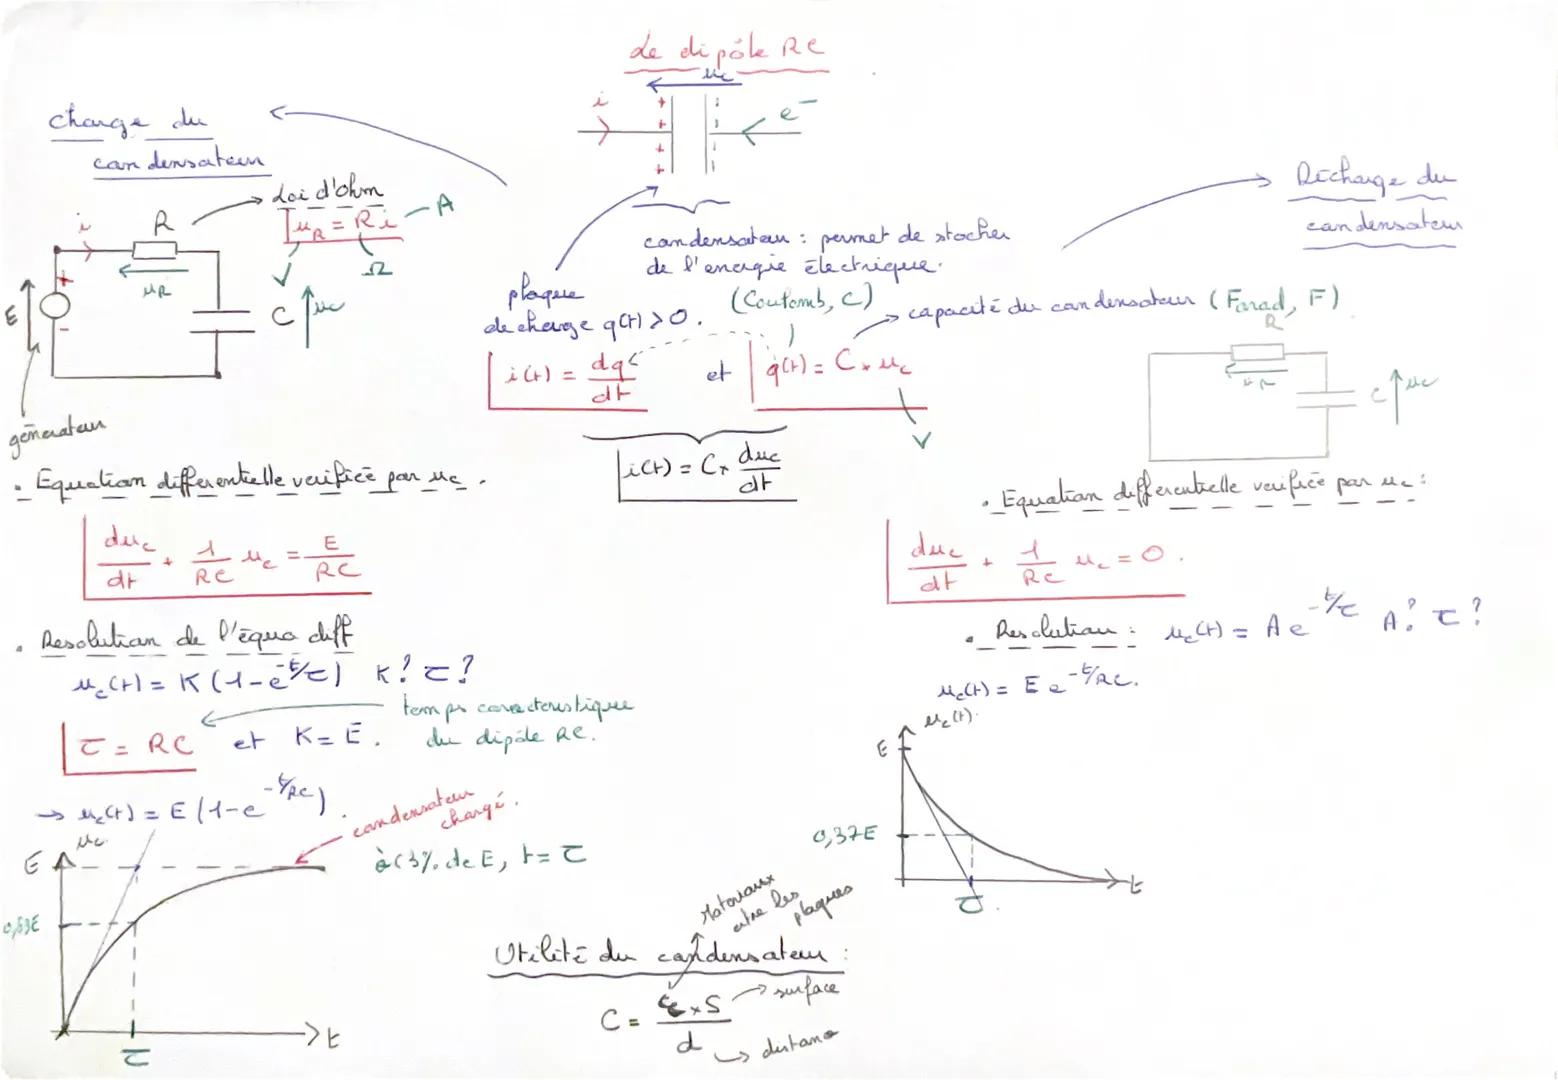 Le dipôle RC
uc
i
e⁻
+ + + +
charge du
condensateur
Loi d'ohm
uR = R i
A
V
Ω
i
R
uR
E
+
-
C
uc
générateur
plaque
de charge q(t) > 0.
condensateur : permet de stocker
de l'énergie électrique.
(Coulomb, C)
capacité du condensateur (Farad, F)
i(t) = dq/dt et q(t) = C × uc
V
i(t) = C × duc/dt
Décharge du
condensateur
R
uR
C
uc
. Equation differentielle verifiée par uc.
duc/dt + 1/RC uc = E/RC
. Resolution de l'équa diff
uc(t) = K (1-e^-t/τ) K? τ?
temps caracteristique
du dipôle RC.
τ = RC et K = E.
→ uc(t) = E (1-e^-t/RC).
condensateur
chargé.
à 63% de E, t = τ
uc
E
0,63E
τ
t
. Equation differentielle verifiée par uc :
duc/dt + 1/RC uc = 0.
. Resolution : uc(t) = A e^-t/τ A? τ?
uc(t) = E e^-t/RC.
uc(t).
E
0,37E
τ.
t
Utilité du condensateur :
Materiaux
entre les
plaques
C = ε × S / d
surface
distance